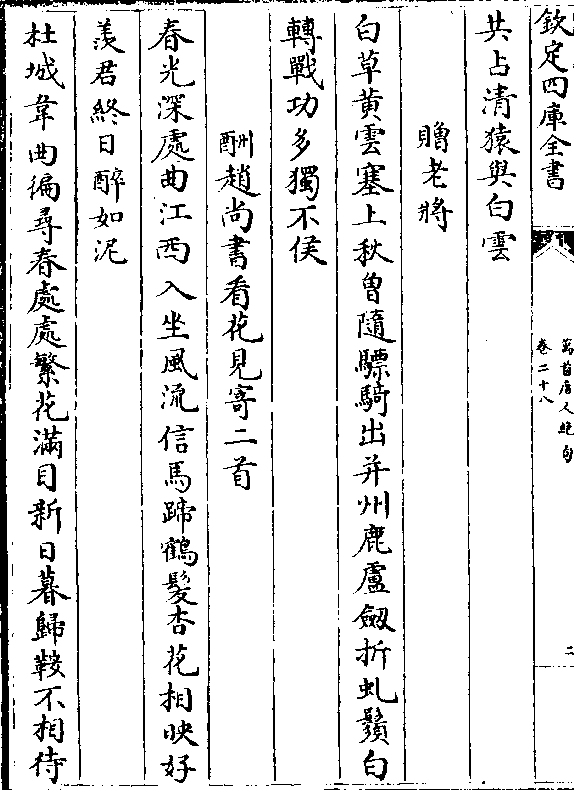 欽定四庫全書
萬首唐人絶句
卷二十八
二
共占清猿與白雲
贈老將
白草黄雲塞上秋曽隨驃騎出并州鹿盧劒折虬鬚白
轉戰功多獨不侯
酬趙尚書看花見寄二首
春光深處曲江西入坐風流信馬蹄鶴髪杏花相映好
羨君終日醉如泥
杜城韋曲徧尋春處處繁花滿目新日暮歸鞍不相待